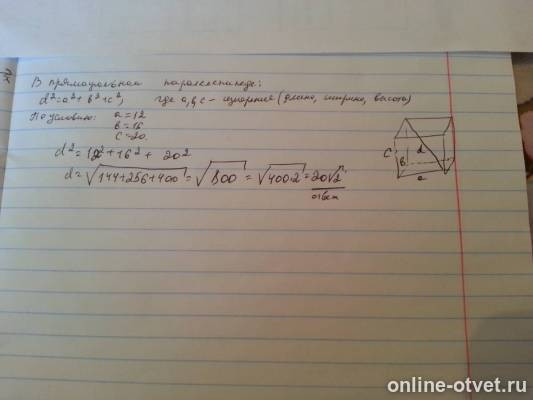 В прямоугольном параллелепипеде:
d²=a²+b²+c², где a,b,c - измерения (длина, ширина, высота)
По условию: a=12
b=16
c=20.
d²=12²+16²+20²
d=√144+256+400=√800=√400·2=20√2.
ответ
C
B
d
a
online-otvet.ru